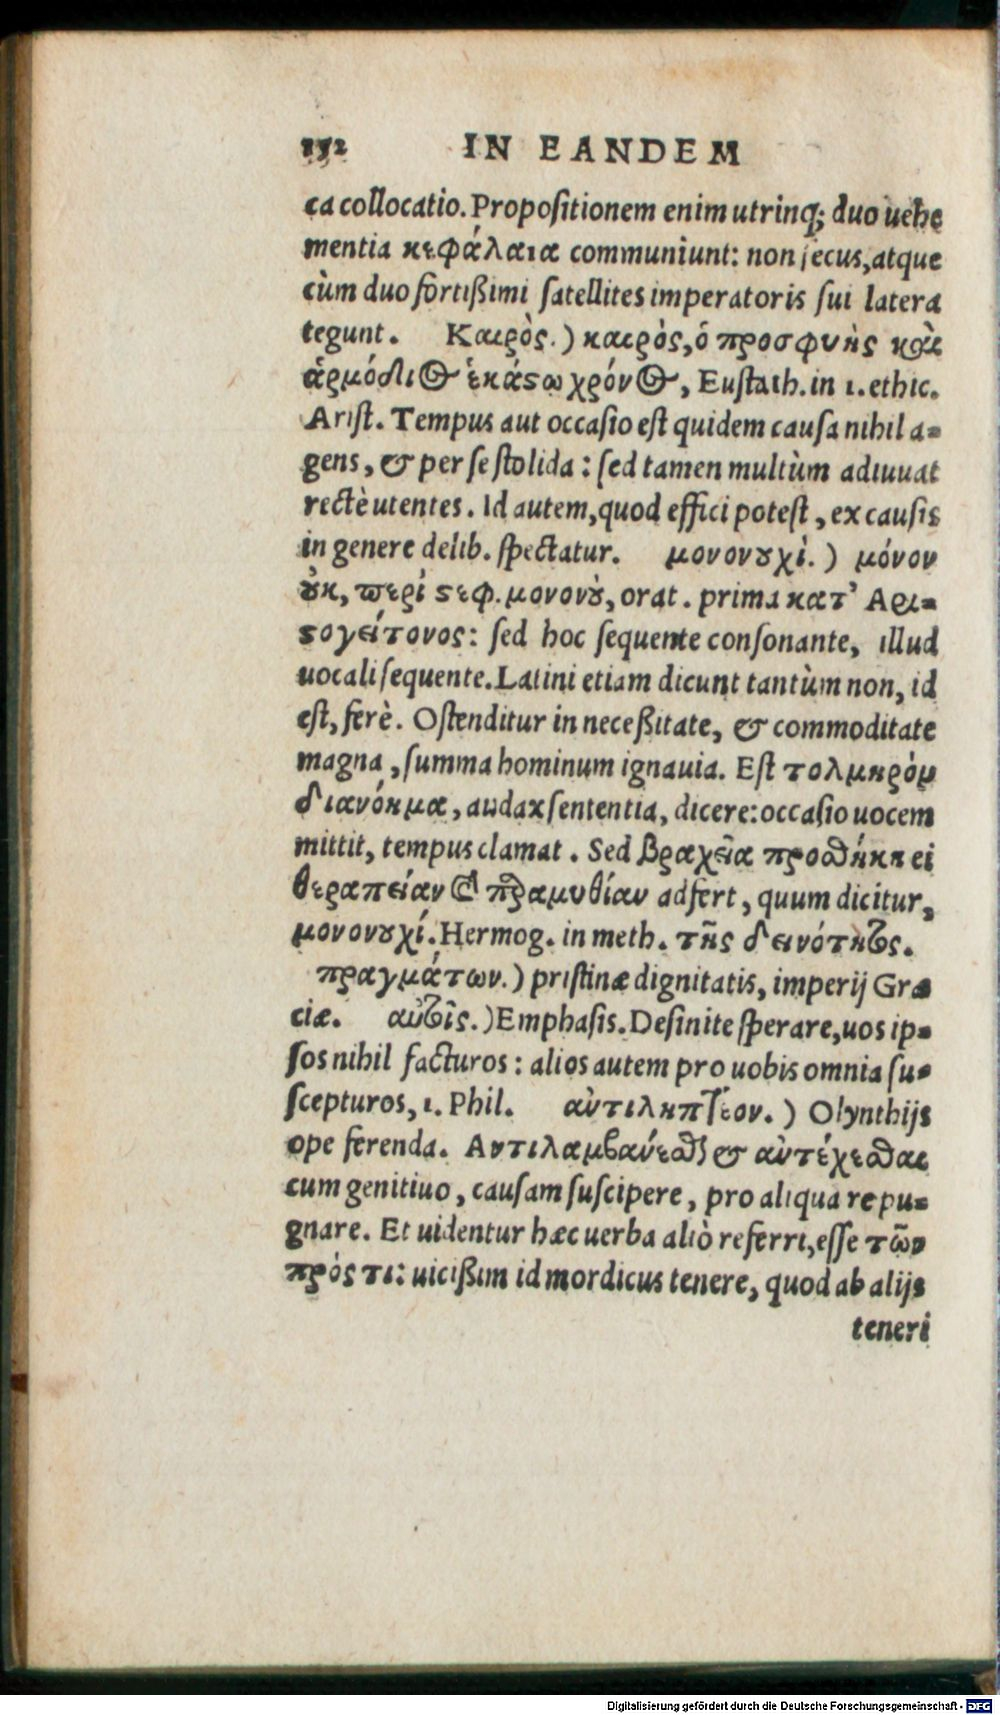 152 IN EANDEM
ca collocatio. Propositionem enim utrinq; duo uehe
mentia κεφάλαια communiunt: non secus, atque
cùm duo fortißimi satellites imperatoris sui latera
tegunt. Καιρὸς.) καιρὸς, ὁ προσφυὴς καὶ
ἁρμόδιος ἑκάστῳ χρόνος, Eustath. in 1. ethic.
Arist. Tempus aut occasio est quidem causa nihil a-
gens, & per se stolida: sed tamen multùm adiuuat
rectè utentes. Id autem, quod effici potest, ex causis
in genere delib. spectatur. μονονουχὶ.) μόνον
οὐκ, περὶ στεφ. μονονοὺ, orat. prima κατ’ Αρι-
στογείτονος: sed hoc sequente consonante, illud
uocali sequente. Latini etiam dicunt tantùm non, id
est, ferè. Ostenditur in neceßitate, & commoditate
magna, summa hominum ignauia. Est τολμηρὸν
διανόημα, audax sententia, dicere: occasio uocem
mittit, tempus clamat. Sed βραχεῖα προσθήκη ei
θεραπείαν & παραμυθίαν adfert, quum dicitur,
μονονουχί. Hermog. in meth. τῆς δεινότητος.
πραγμάτων.) pristinæ dignitatis, imperij Græ
ciæ. αὐτοῖς.) Emphasis. Desinite sperare, uos ip-
sos nihil facturos: alios autem pro uobis omnia su-
scepturos, 1. Phil. ἀντιληπτέον.) Olynthijs
ope ferenda. Αντιλαμβάνεσθαι & ἀντέχεσθαι
cum genitiuo, causam suscipere, pro aliqua re pu-
gnare. Et uidentur hæc uerba aliò referri, esse τῶν
πρός τι: uicißim id mordicus tenere, quod ab alijs
teneri
Digitalisierung gefördert durch die Deutsche Forschungsgemeinschaft - DFG